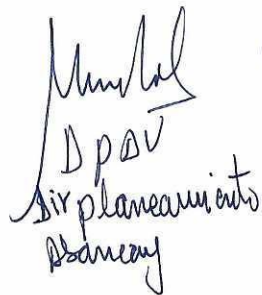 DPDU
Dir planeamiento
Abancay